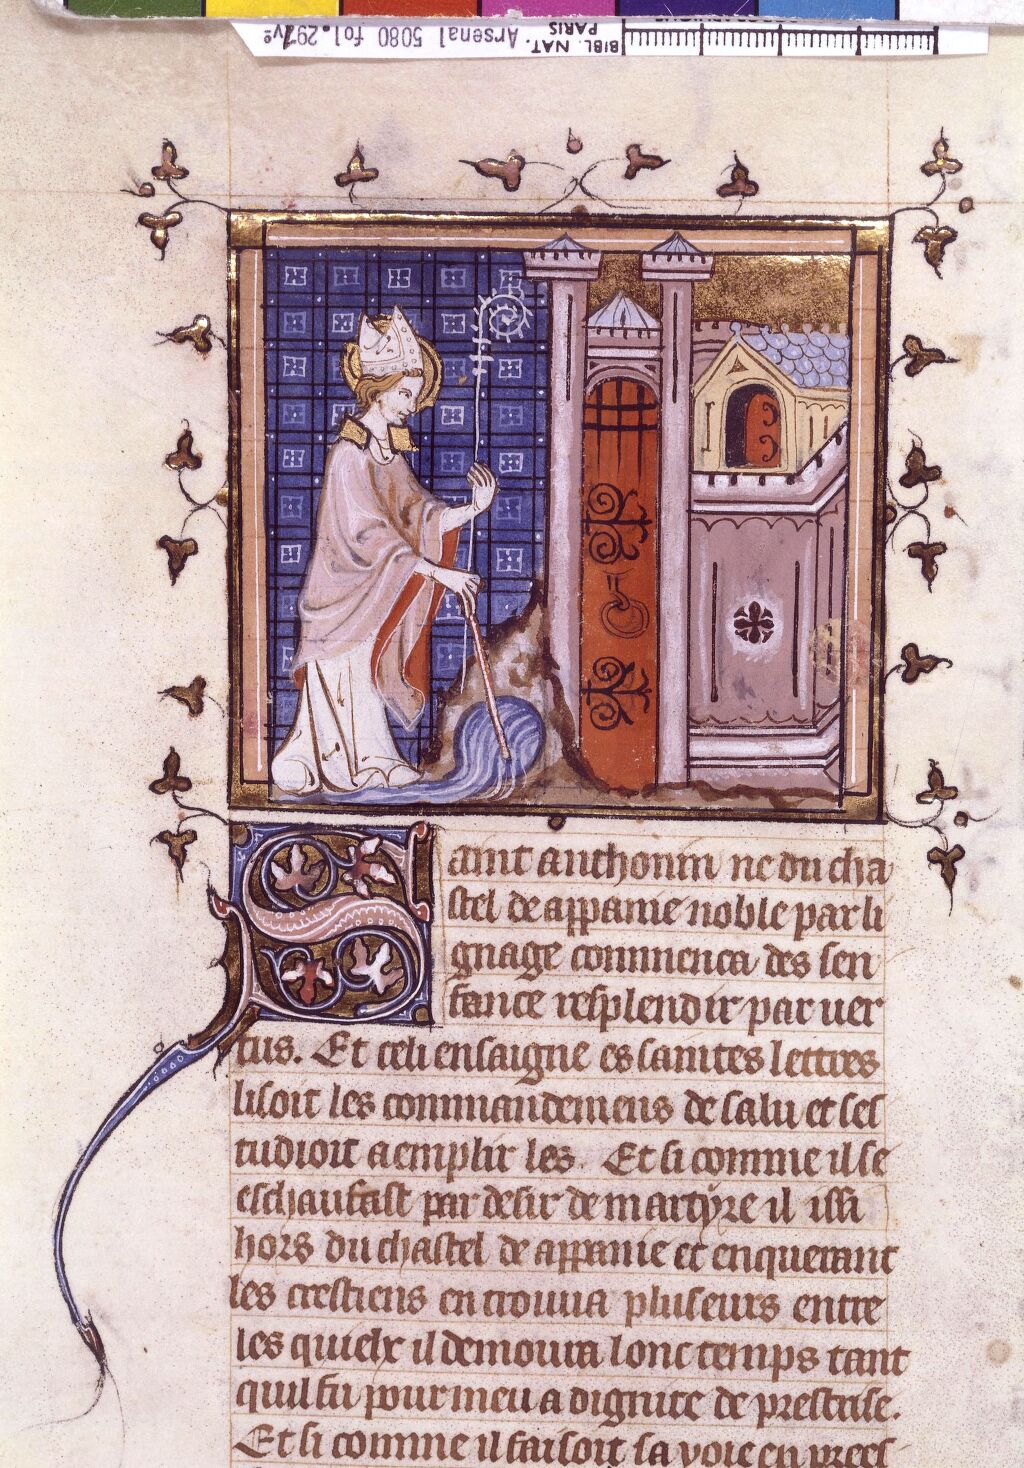 Arsenal 5080 fol. 297vº
BIBL. NAT.
PARIS
Saint anthonin ne du cha
stel de appanie noble par li
gnage commenca des sen
fance resplendir par uer
tus. Et celi ensaigne es saintes lettres
lisoit les commandemens de salu et ses
tudioit a emplir les. Et si comme il se
eschaufast par desir de martyre il issi
hors du chastel de appanie et enquerant
les crestiens en trouua pluseurs entre
les quielx il demoura lonc temps tant
quil fu pourmeu a dignite de prestrise.
Et si comme il faisoit sa voie en prees